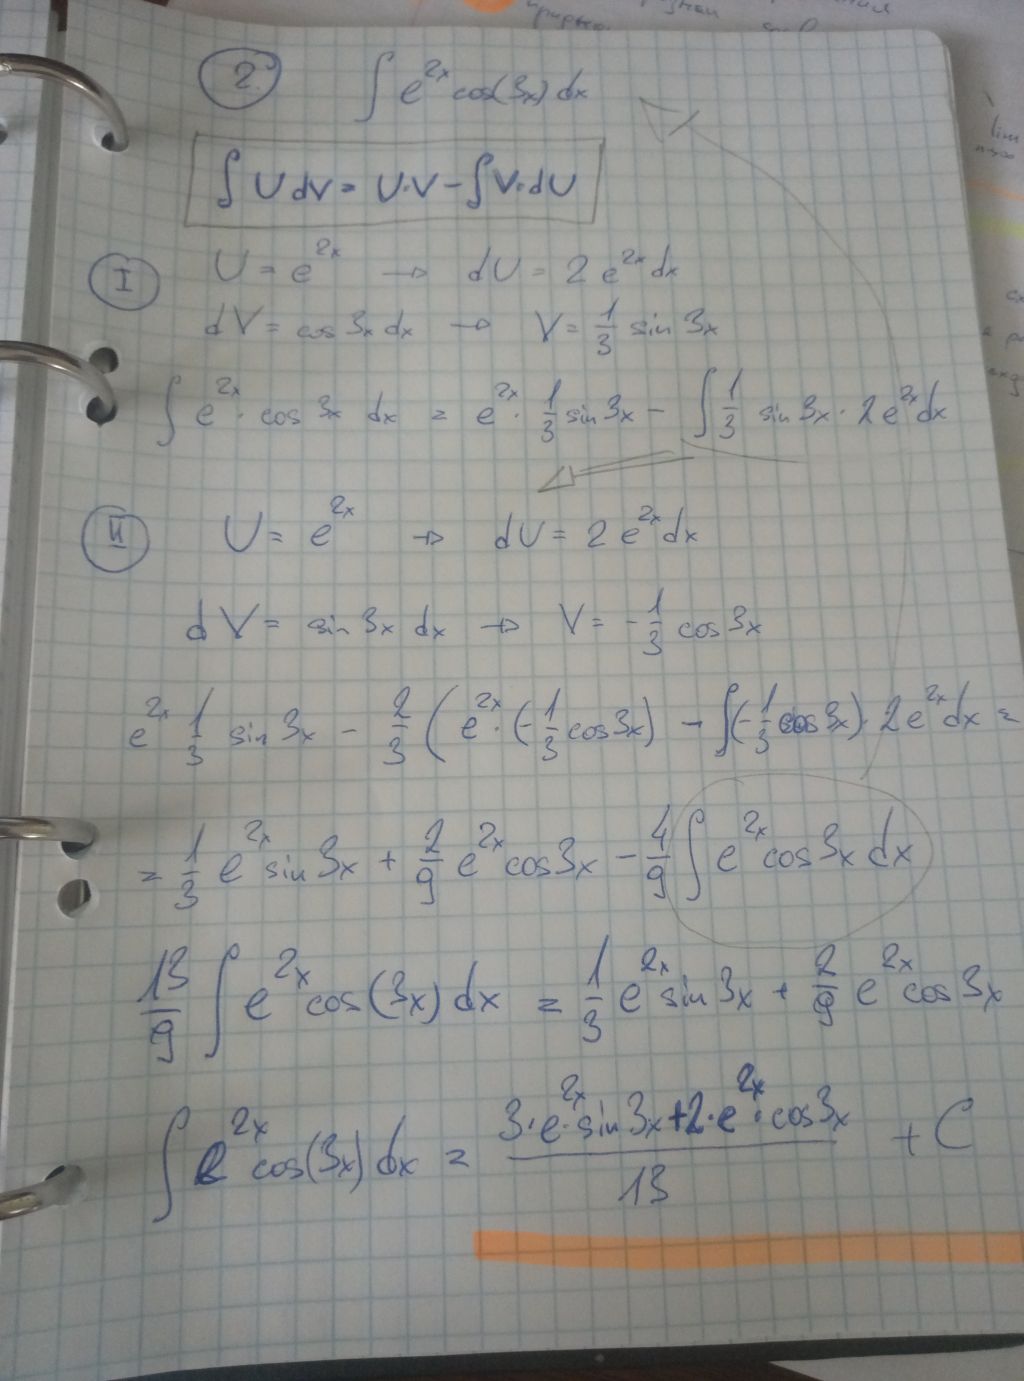 2. ∫ e^{2x} cos(3x) dx
∫ U dV = U·V - ∫ V·dU
I U = e^{2x} → dU = 2 e^{2x} dx
dV = cos 3x dx → V = 1/3 sin 3x
∫ e^{2x} · cos 3x dx = e^{2x} · 1/3 sin 3x - ∫ 1/3 sin 3x · 2 e^{2x} dx
II U = e^{2x} → dU = 2 e^{2x} dx
dV = sin 3x dx → V = -1/3 cos 3x
e^{2x} 1/3 sin 3x - 2/3 ( e^{2x} · (-1/3 cos 3x) - ∫ (-1/3 cos 3x) · 2 e^{2x} dx =
= 1/3 e^{2x} sin 3x + 2/9 e^{2x} cos 3x - 4/9 ∫ e^{2x} cos 3x dx
13/9 ∫ e^{2x} cos(3x) dx = 1/3 e^{2x} sin 3x + 2/9 e^{2x} cos 3x
∫ e^{2x} cos(3x) dx = (3·e^{2x}·sin 3x + 2·e^{2x}·cos 3x)/13 + C
lim
n→∞